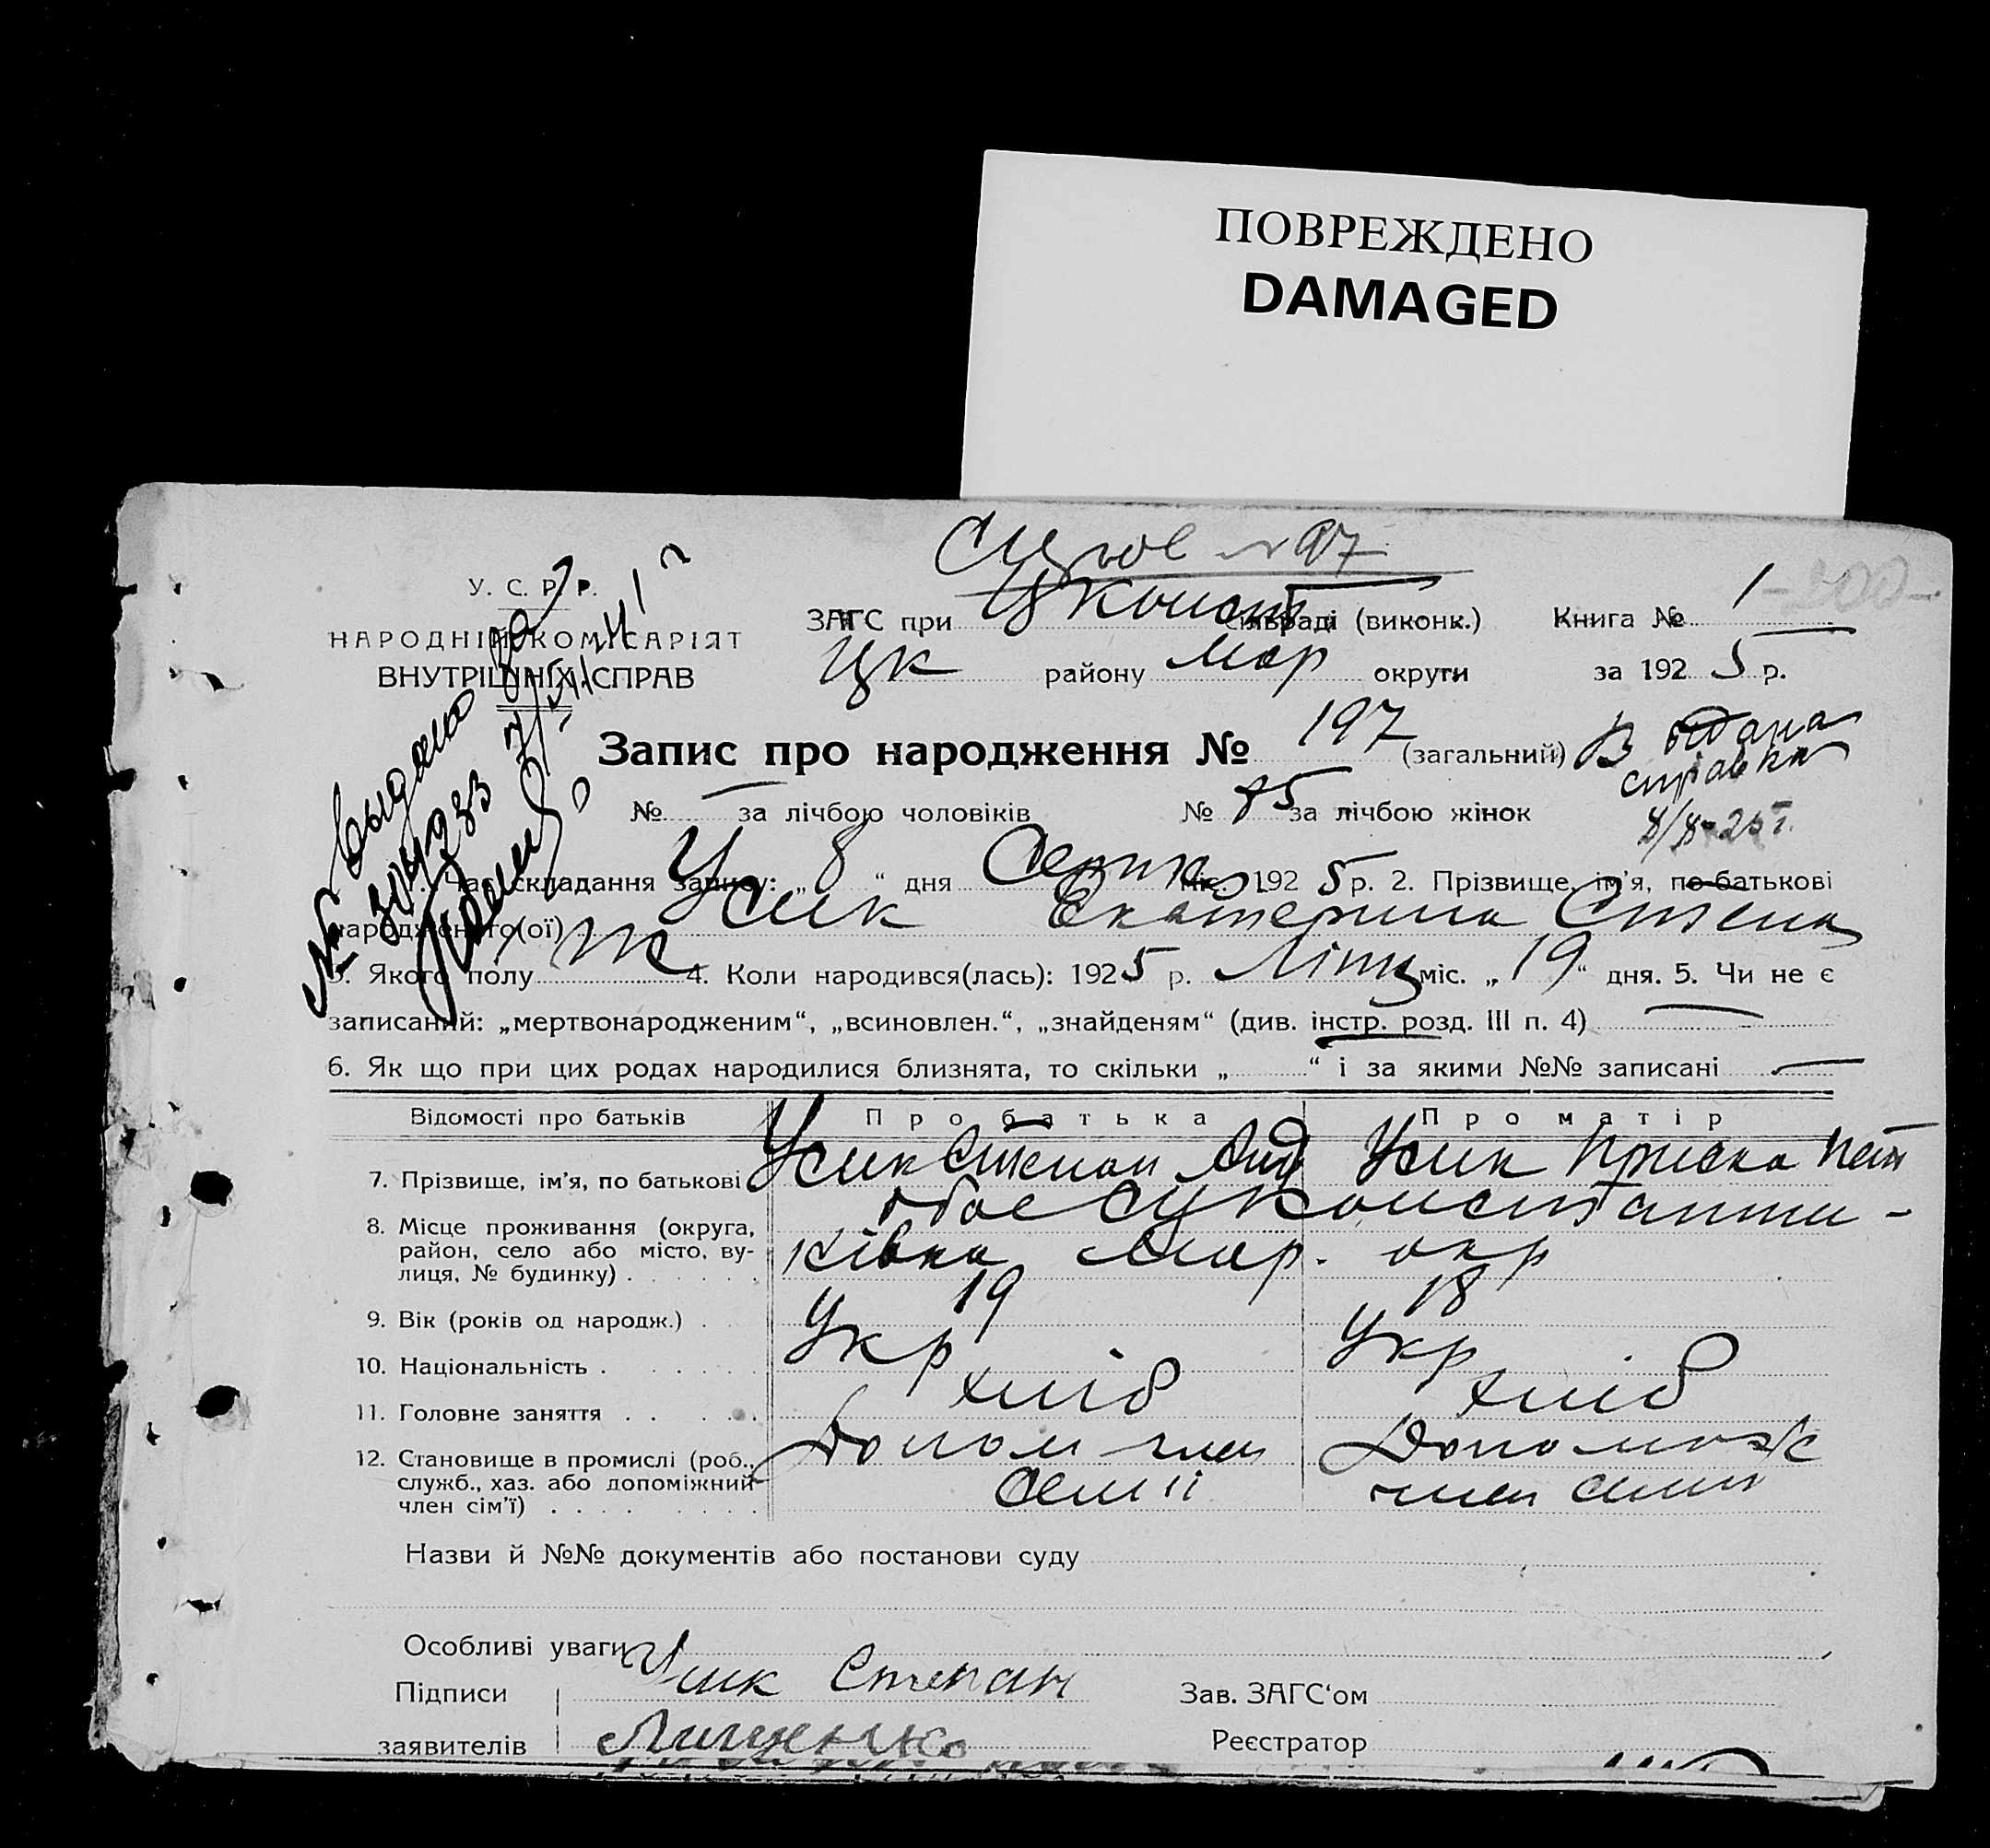 ПОВРЕЖДЕНО
DAMAGED
№ 97
У. С. Р. Р.
НАРОДНІЙ КОМІСАРІЯТ
ВНУТРІШНІХ СПРАВ
ЗАГС при Цконст сільраді (виконк.) Книга № 1 -200-
Цк району Мар округи за 1925 р.
Запис про народження № 197 (загальний)
Видана
справка
8/8-25 г.
№ — за лічбою чоловіків № 85 за лічбою жінок
Выдано
№
1. Час складання запису: „8“ дня Серпня міс. 1925 р. 2. Прізвище, ім’я, по батькові
народженого(ої) Усик Екатерина Степан
3. Якого полу Ж 4. Коли народився(лась): 1925 р. Липц міс. „19“ дня. 5. Чи не є
записаний: „мертвонародженим“, „всиновлен.“, „знайденям“ (див. інстр. розд. III п. 4) —
6. Як що при цих родах народилися близнята, то скільки „ “ і за якими №№ записані —
Відомості про батьків Про батька Про матір
7. Прізвище, ім’я, по батькові Усик Степан Анд Усик Приска Пет
8. Місце проживання (округа, район, село або місто, вулиця, № будинку) обое с Цконстантинківка Мар. окр
9. Вік (років од народж.) 19 18
10. Національність Укр Укр
11. Головне заняття хліб хліб
12. Становище в промислі (роб., служб., хаз. або допоміжний член сім’ї) Допом член семіі Допомож член семіи
Назви й №№ документів або постанови суду
Особливі уваги
Підписи Усик Степан Зав. ЗАГС‘ом
заявителів Реєстратор